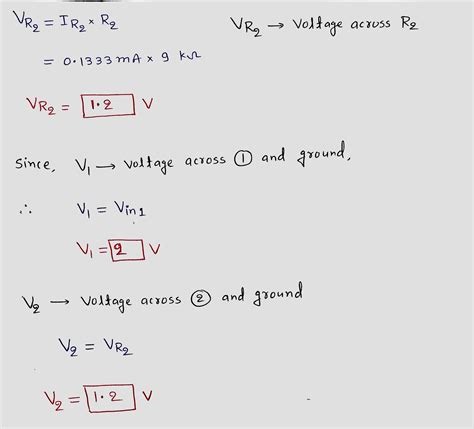 V_R2 = I_R2 × R2    V_R2 → Voltage across R2
= 0.1333 mA × 9 kΩ
V_R2 = 1.2 V
Since, V1 → voltage across ① and ground,
∴ V1 = Vin1
V1 = 2 V
V2 → Voltage across ② and ground
V2 = V_R2
V2 = 1.2 V